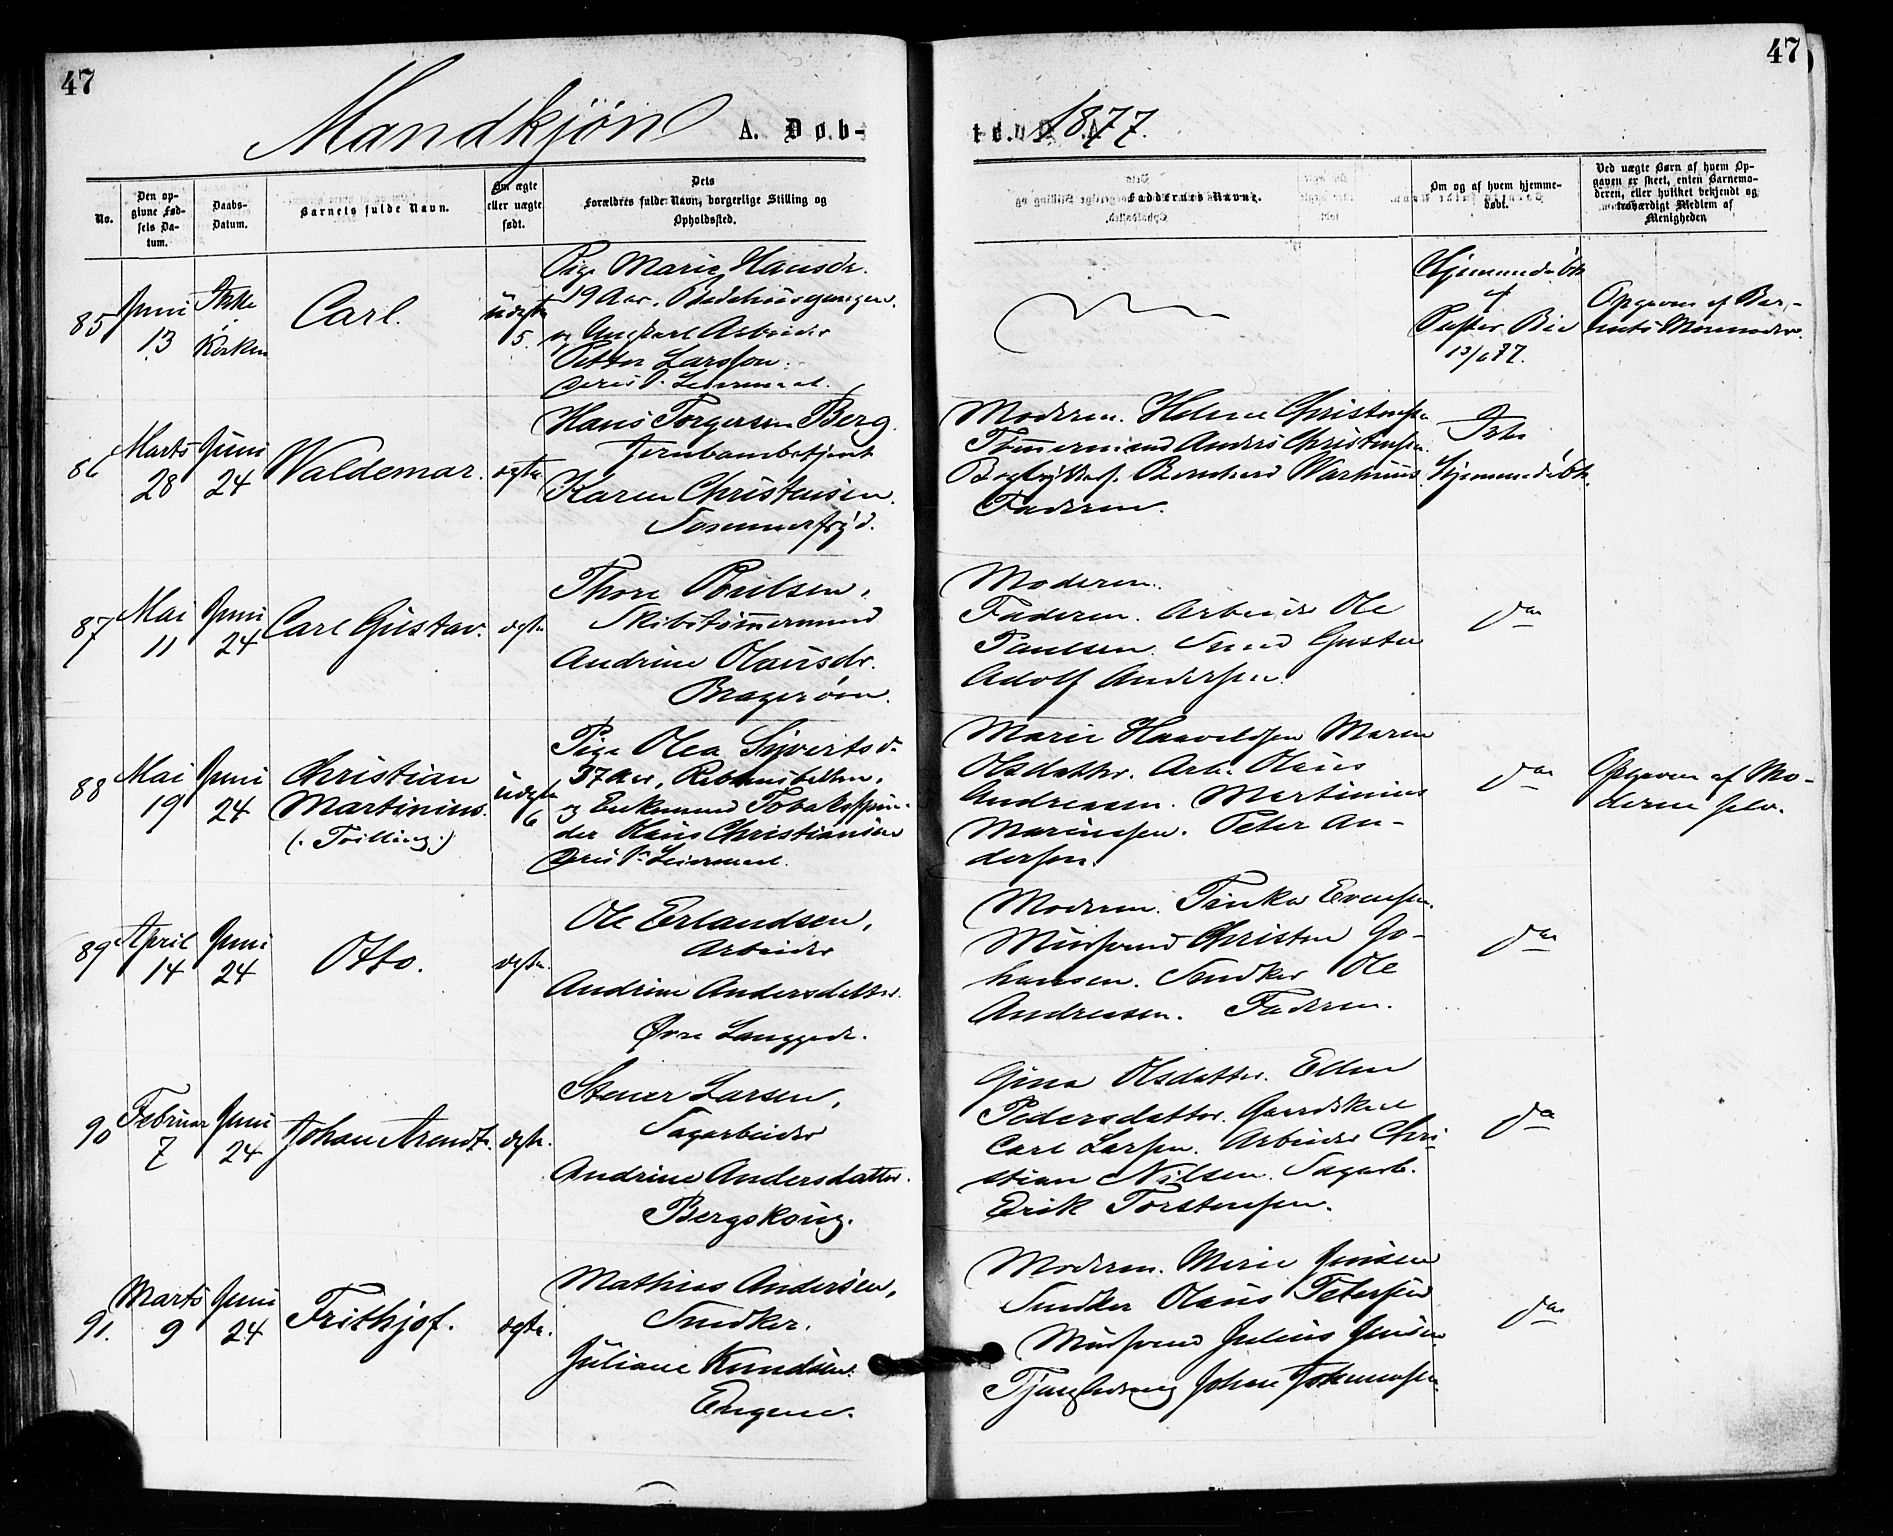 47
47
Mandkjøn A. Døb-
te. 1877.
No.
Den op-
givne Fød-
sels Da-
tum.
Daabs-
Datum.
Barnets fulde Navn.
Om ægte
eller uægte
født.
Dets
Forældres fulde Navn, borgerlige Stilling og
Opholdssted.
Faddernes Navne.
Om og af hvem hjemme-
døbt.
Ved uægte Børn af hvem Op-
gaven er skeet, enten Barnemo-
deren, eller hvilket bekjendt og
troværdigt Medlem af
Menigheden
85
Juni
13
Ikke
i
Kirken
Carl.
uægte
5.
Pige Marie Hansdr.
19 Aar. Bedehusgangen.
og Ungkarl Arbeider
Petter Larsson.
Deres 1. Leiermaal.
Hjemmedøbt
af
Pastor Bie
13/6 77.
Opgaven af Bar-
nets Mormoder.
86
Marts
28
Juni
24
Waldemar.
ægte.
Hans Torgersen Berg
Jernbanebetjent
Karen Christensen.
Sommerfryd.
Moderen. Helene Christensen
Tømmermand Anders Christensen.
Bernhard
Faderen.
Ikke
Hjemmedøbt.
87
Mai
11
Juni
24
Carl Gustav.
ægte
Thore Poulsen,
Skibstømmermand
Andrine Olausdr.
Bragerøen.
Moderen.
Faderen. Arbeider Ole
Paulsen. Smed Gustav
Adolf Andersen.
do
88
Mai
19
Juni
24
Christian
Martinius.
(: Tvilling:)
uægte
6
Pige Olea Syvertsd.
37 Aar,
og Enkemand Tobaksspin-
der Claus Christiansen
Deres 1ste Leiermaal.
Marie Haavelsen Maren
Olsdatter. Arb. Olaus
Andreasen. Martinius
Mariussen. Peter An-
dersen.
do
Opgaven af Mo-
deren selv.
89
April
14
Juni
24
Otto.
ægte.
Ole Erlandsen,
Arbeider
Andrine Andersdatter.
Øvre Langgade.
Moderen. Tinka Evensen.
Mursvend Christen Jo-
hansen. Snedker Ole
Andreasen. Faderen.
do
90
Februar
7
Juni
24
Johan Arendt.
ægte.
Stener Larsen,
Sagarbeider
Andrine Andersdatter.
Bergskoug.
Gina Olsdatter. Ellen
Pedersdatter. Gaardskarl
Carl Larsen. Arbeider Chri-
stian Nilsen. Sagarb.
Erik Torstensen.
do
91.
Marts
9
Juni
24
Frithjof.
ægte.
Mathias Andersen,
Snedker.
Juliane Knudsen.
Engene.
Moderen. Marie Jensen
Snedker Olaus Petersen
Mursvend Julius Jensen.
Johan Johannesen.
do